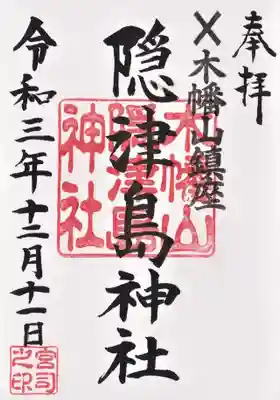 奉拝
〆木幡山鎮座
隠津島神社
令和三年十二月十一日
木幡山
隠津島
神社
宮司
之印